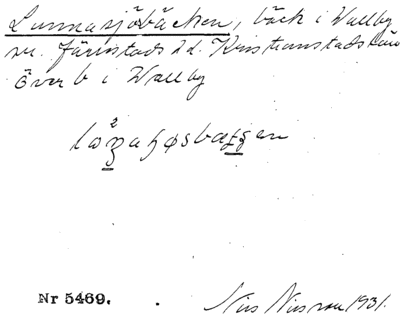 Lunnasjöbäcken, bäck i Wallby
sn. Järrestads hd. Kristianstads län
över b i Wallby
Nr 5469.
Nils Nilsson 1931.